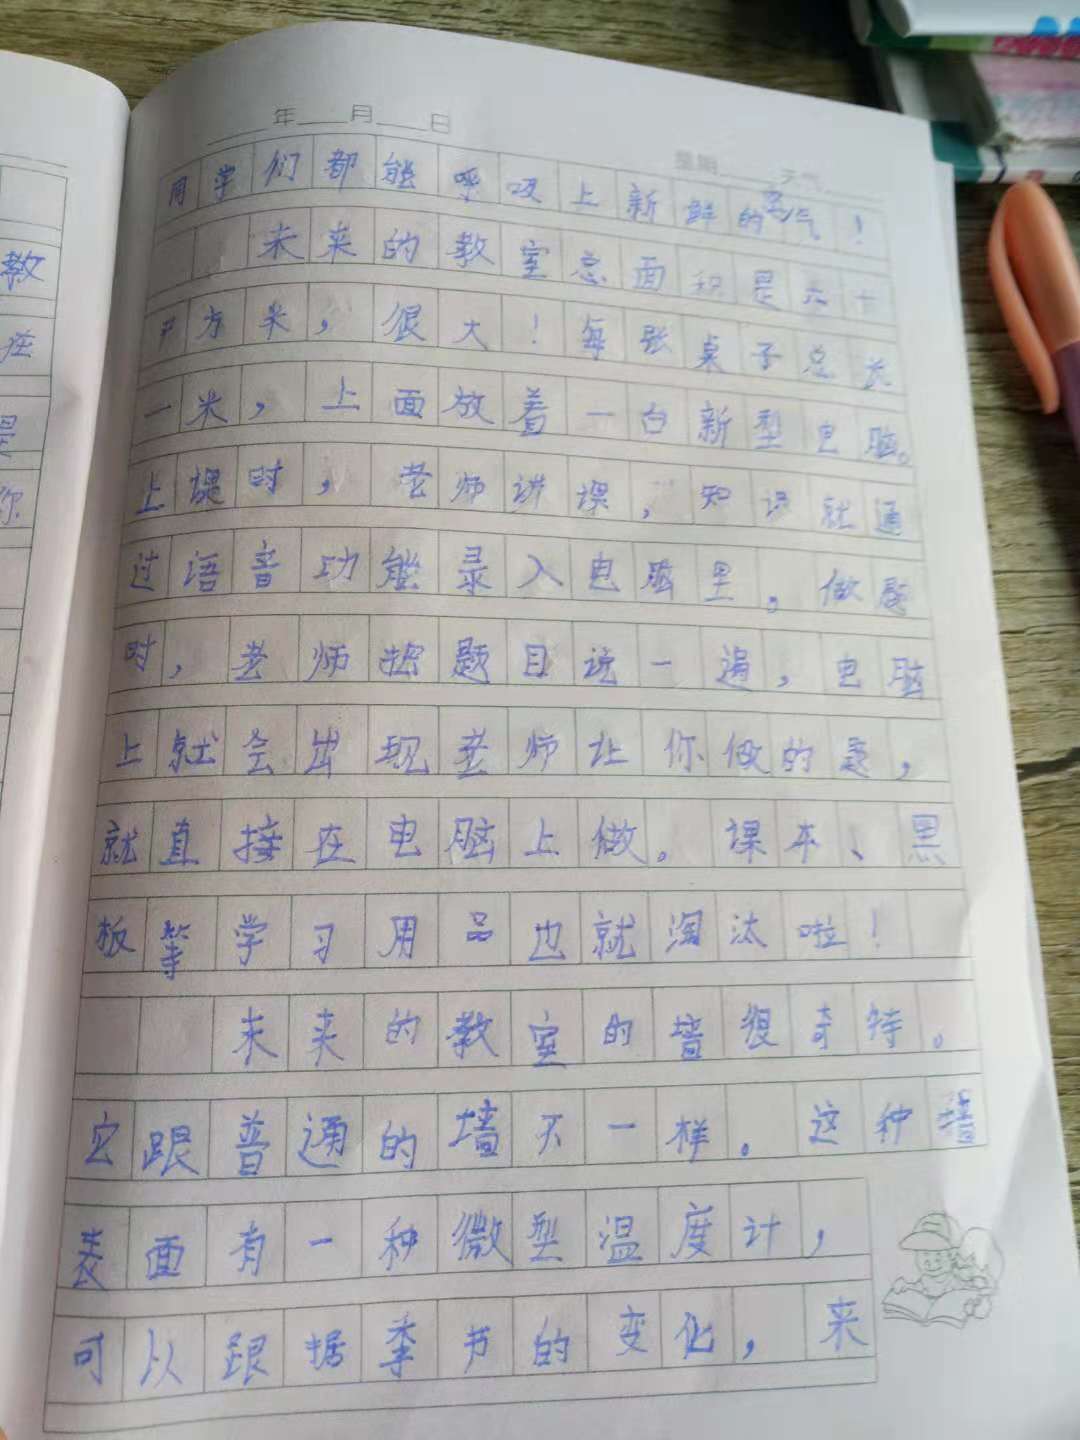 年 月 日
星期 天气
同学们都能呼吸上新鲜的空气！
未来的教室总面积是六十
平方米，很大！每张桌子总长
一米，上面放着一台新型电脑。
上课时，老师讲课，知识就通
过语音功能录入电脑里。做题
时，老师把题目说一遍，电脑
上就会出现老师让你做的题，
就直接在电脑上做。课本、黑
板等学习用品也就淘汰啦！
未来的教室的墙很奇特。
它跟普通的墙不一样。这种墙
表面有一种微型温度计，
可以跟据季节的变化，来
教
在
是
你